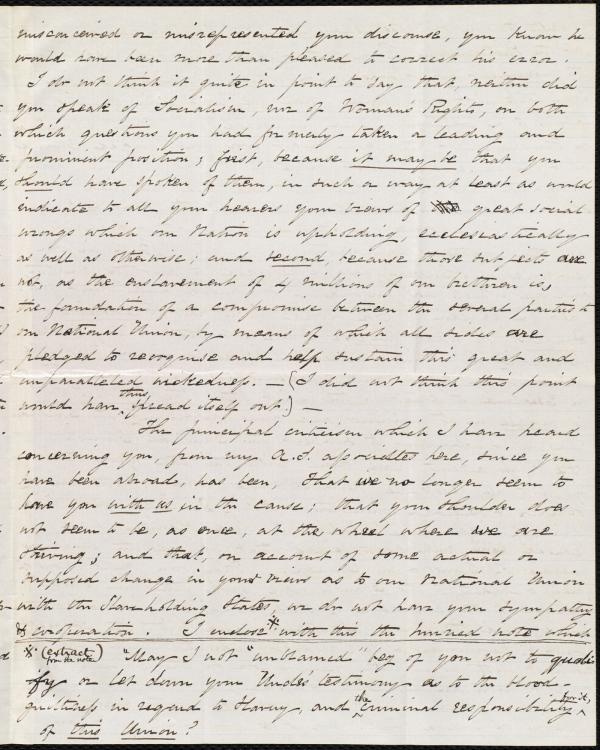 misconceived or misrepresented your discourse, you know he
would have been more than pleased to correct his error.
I do not think it quite in point to say that, neither did
you speak of Socialism, nor of Woman's Rights, on both
which questions you had formerly taken a leading and
prominent position; first, because it may be that you
should have spoken of them, in such a way at least as would
indicate to all your hearers your views of great social
wrongs which our Nation is upholding, ecclesiastically
as well as otherwise; and second, because those subjects are
not, as the enslavement of 4 millions of our brethren is,
the foundation of a compromise between the several parties to
our National Union, by means of which all sides are
pledged to recognise and help sustain this great and
unparalleled wickedness. — (I did not think this point
would have thus spread itself out.) —
The principal criticism which I have heard
concerning you, from my A.S. associates here, since you
have been abroad, has been, That we no longer seem to
have you with us in the cause; that your shoulder does
not seem to be, as once, at the wheel where we are
striving; and that, on account of some actual or
supposed change in your views as to our National Union
with the Slaveholding States, we do not have your sympathy
& cooperation. I enclose* with this the hurried note which
*. (extract from the note) "May I not "unblamed" beg of you not to quali
fy or let down your Uncle's testimony as to the blood-
guiltiness in regard to Slavery, and the criminal responsibility for it,
of this Union?